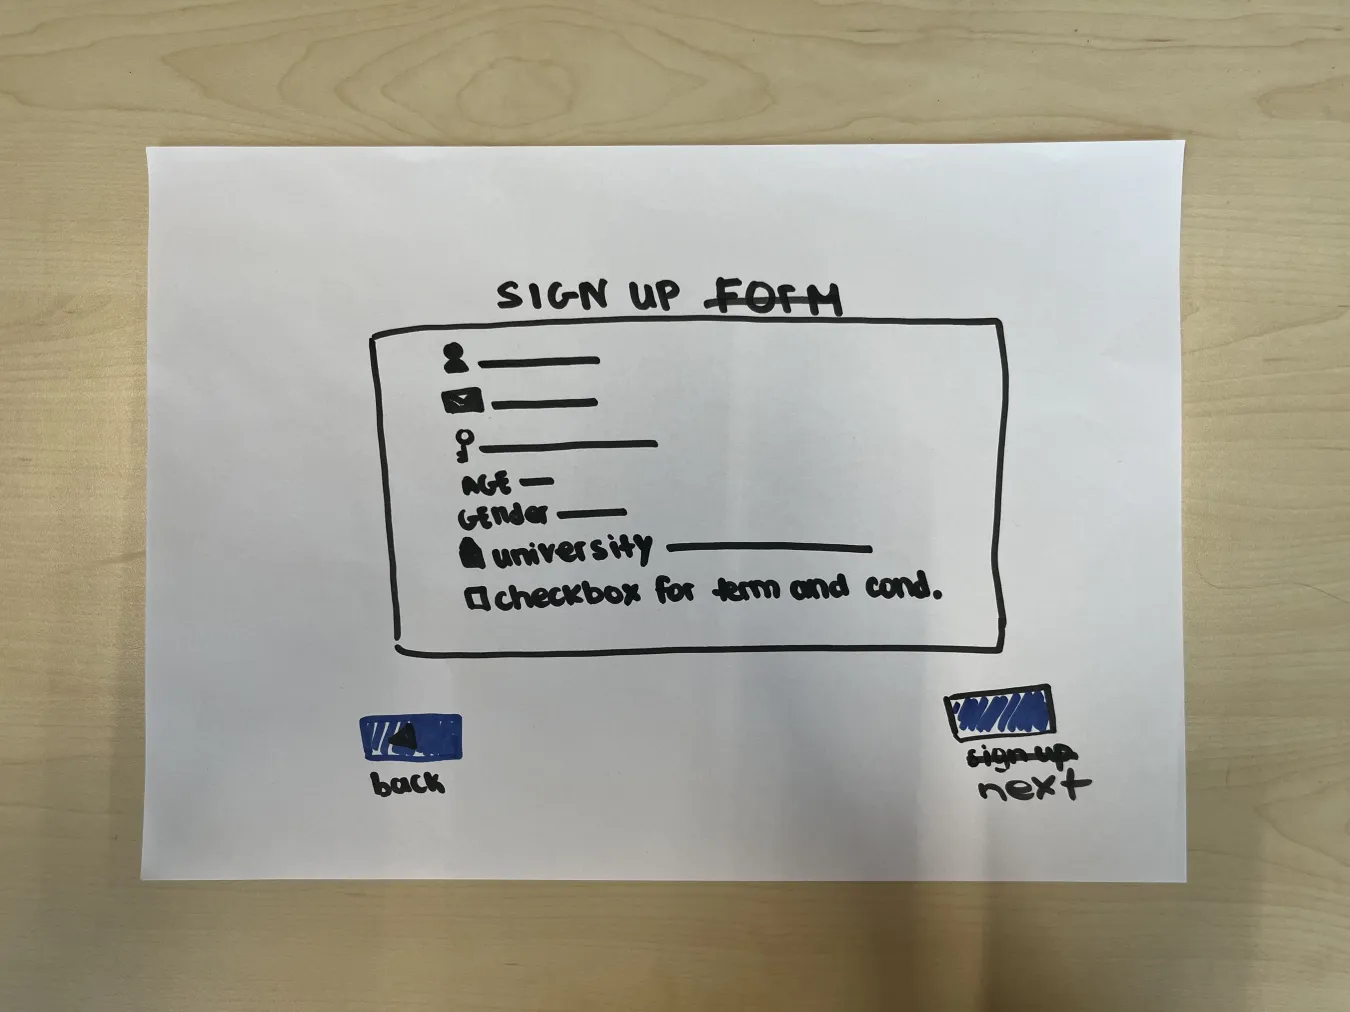 SIGN UP FORM
AGE
GENder
university
checkbox for term and cond.
back
sign up
next